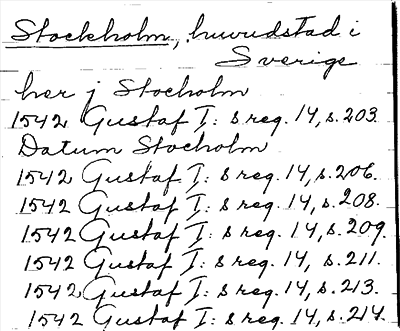 Stockholm, huvudstad i
Sverige
her j Stocholm
1542 Gustaf I: s reg. 14, s. 203.
Datum Stocholm
1542 Gustaf I: s reg. 14, s. 206.
1542 Gustaf I: s reg. 14, s. 208.
1542 Gustaf I: s reg. 14, s. 209.
1542 Gustaf I: s reg. 14, s. 211.
1542 Gustaf I: s reg. 14, s. 213.
1542 Gustaf I: s reg. 14, s. 214.